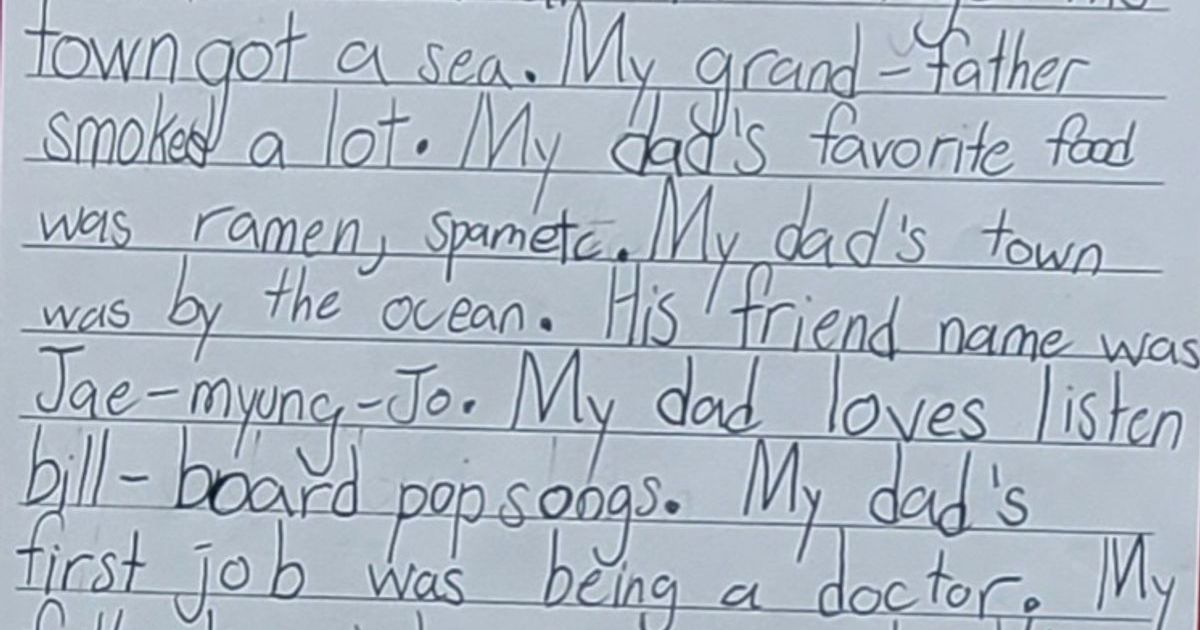 town got a sea. My grand-father
smoked a lot. My dad's favorite food
was ramen, spam etc. My dad's town
was by the ocean. His friend name was
Jae-myung-Jo. My dad loves listen
bill-board pop songs. My dad's
first job was being a doctor. My